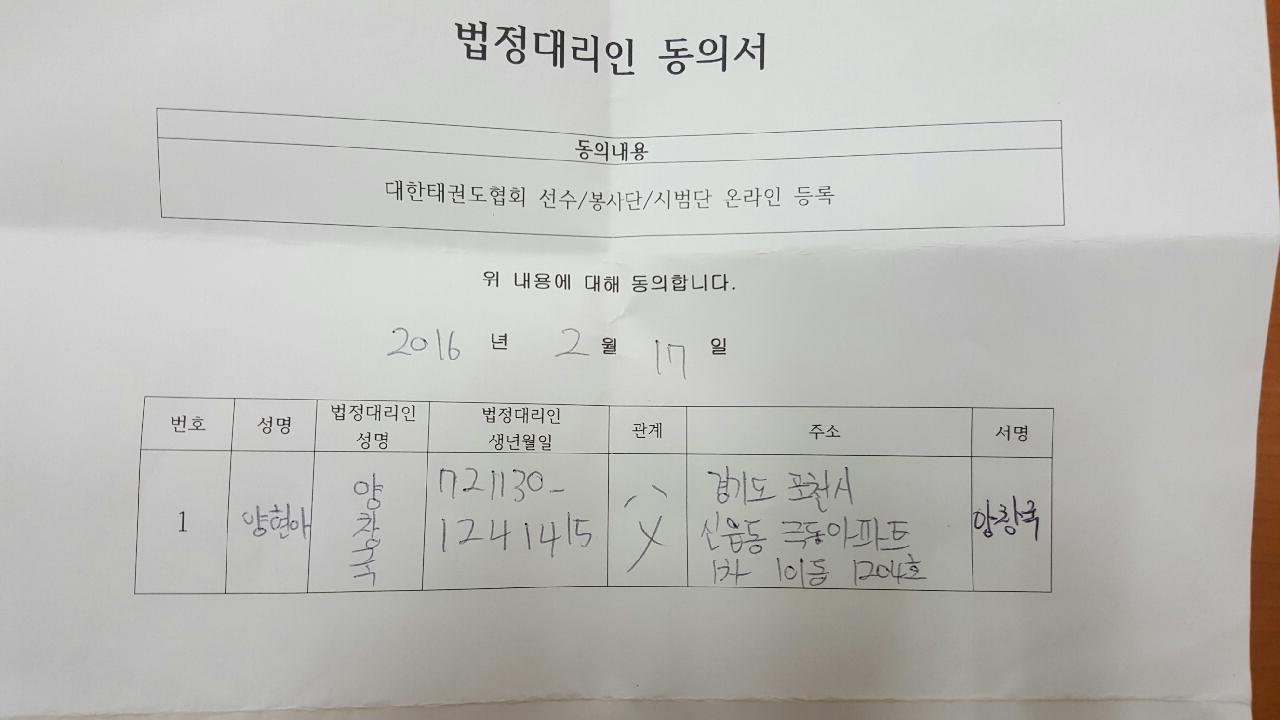 법정대리인 동의서
동의내용
대한태권도협회 선수/봉사단/시범단 온라인 등록
위 내용에 대해 동의합니다.
2016 년 2 월 17 일
번호 성명 법정대리인 성명 법정대리인 생년월일 관계 주소 서명
1 양현아 양창국 721130- 1241415 父 경기도 포천시
신읍동 극동아파트
1차 101동 1204호
양창국